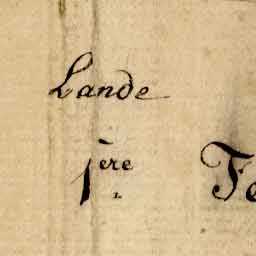 Lande
1ère